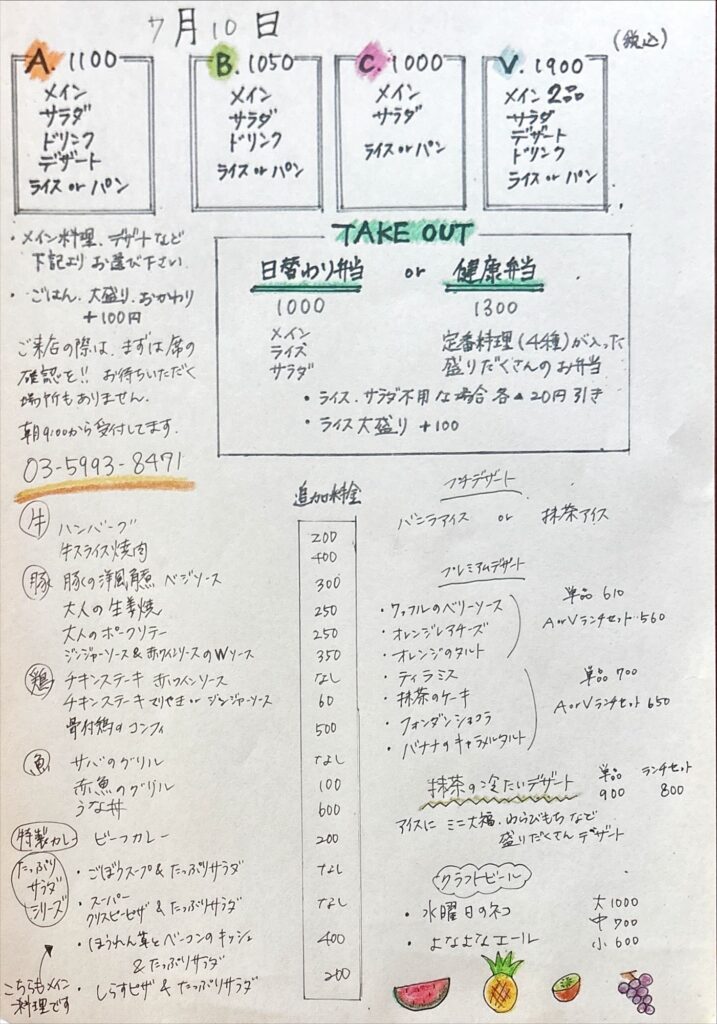 7月10日
(税込)
A. 1100
メイン
サラダ
ドリンク
デザート
ライス or パン
B. 1050
メイン
サラダ
ドリンク
ライス or パン
C. 1000
メイン
サラダ
ライス or パン
V. 1900
メイン 2品
サラダ
デザート
ドリンク
ライス or パン
・メイン料理、デザートなど
下記より お選び下さい
・ごはん、大盛り、おかわり
+100円
ご来店の際は、まずは席の
確認を!! お待ちいただく
場所もありません。
朝9:00から受付してます。
03-5993-8471
TAKE OUT
日替わり弁当 or 健康弁当
1000
メイン
ライス
サラダ
1300
定番料理(4種)が入った
盛りだくさんのお弁当
・ライス、サラダ不用な場合 各▲20円引き
・ライス大盛り +100
追加料金
牛
ハンバーグ 200
牛スライス焼肉 400
豚
豚の洋風角煮 ベジソース 300
大人の生姜焼 250
大人のポークソテー 250
ジンジャーソース&赤ワインソースのWソース 350
鶏
チキンステーキ 赤ワインソース なし
チキンステーキ てりやき or ジンジャーソース 60
骨付鶏のコンフィ 500
魚
サバのグリル なし
赤魚のグリル 100
うな丼 600
特製カレー
ビーフカレー 200
たっぷり
サラダ
シリーズ
・ごぼうスープ&たっぷりサラダ なし
・スーパー
クリスピーピザ&たっぷりサラダ なし
・ほうれん草とベーコンのキッシュ 400
&たっぷりサラダ
・しらすピザ&たっぷりサラダ 200
こちらもメイン
料理です
プチデザート
バニラアイス or 抹茶アイス
プレミアムデザート
・ワッフルのベリーソース
・オレンジレアチーズ
・オレンジのタルト
単品 610
A or Vランチセット 560
・ティラミス
・抹茶のケーキ
・フォンダンショコラ
・バナナのキャラメルタルト
単品 700
A or Vランチセット 650
抹茶の冷たいデザート
単品
900
ランチセット
800
アイスに ミニ大福、わらびもち など
盛りだくさん デザート
クラフトビール
・水曜日のネコ
・よなよなエール
大 1000
中 700
小 600